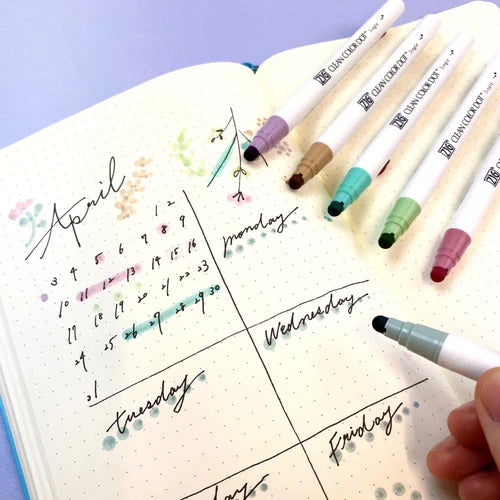 ZIG CLEAN COLOR DOT™ Single
ZIG CLEAN COLOR DOT™ Single
ZIG CLEAN COLOR DOT™ Single
ZIG CLEAN COLOR DOT™
ZIG
April
1 2
3 4 5 6 7 8 9
10 11 12 13 14 15 16
17 18 19 20 21 22 23
24 25 26 27 28 29 30
monday
Wednesday
tuesday
Friday
day